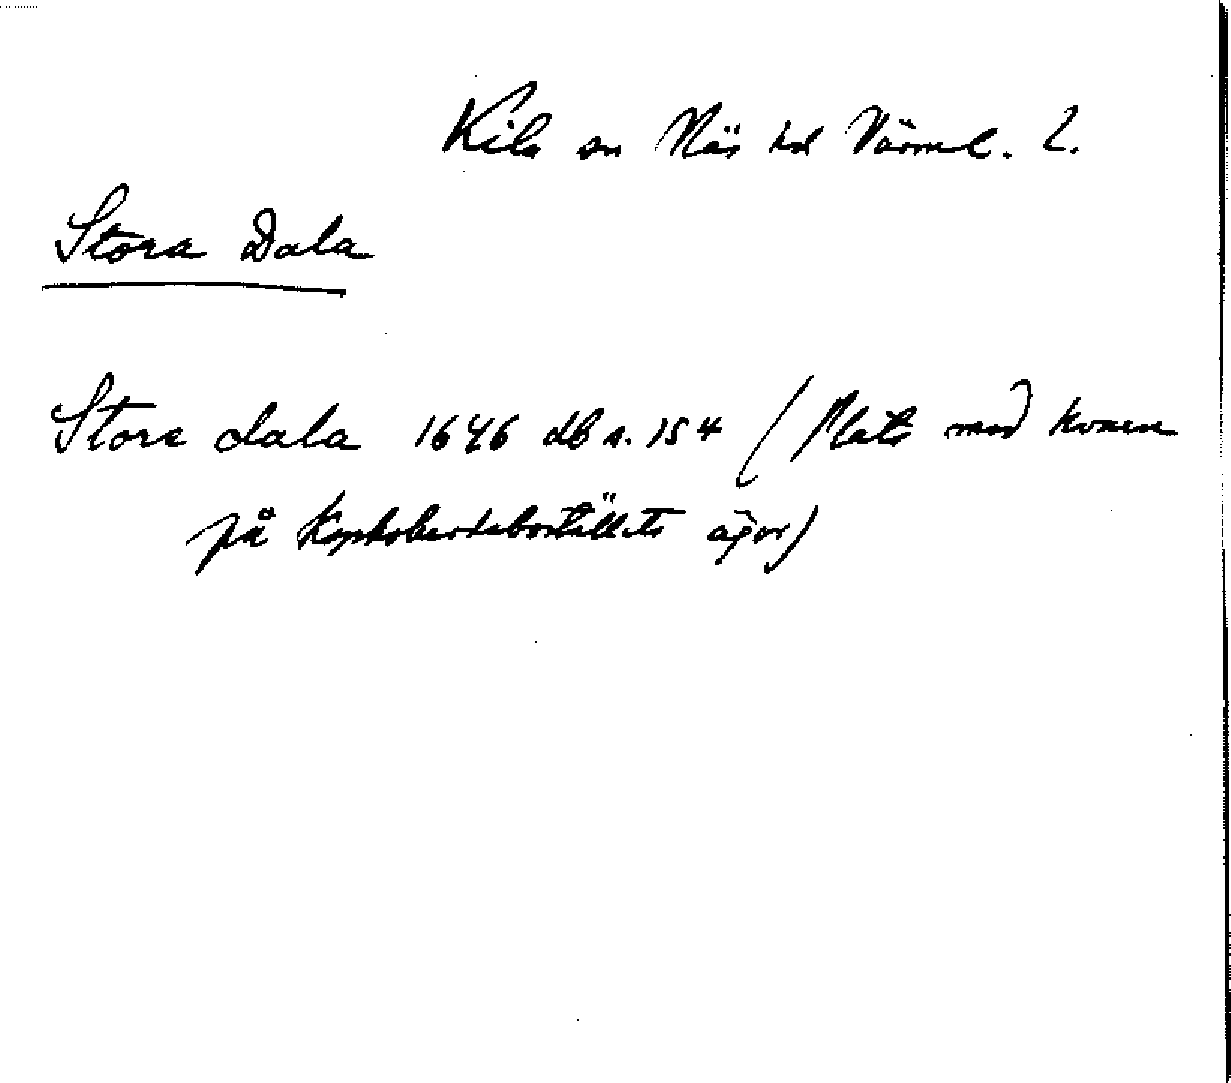 Kils sn Näs hd Värml. l.
Stora Dala
Store dala 1646 db s. 154 (Plats med kvarn
på ägor)